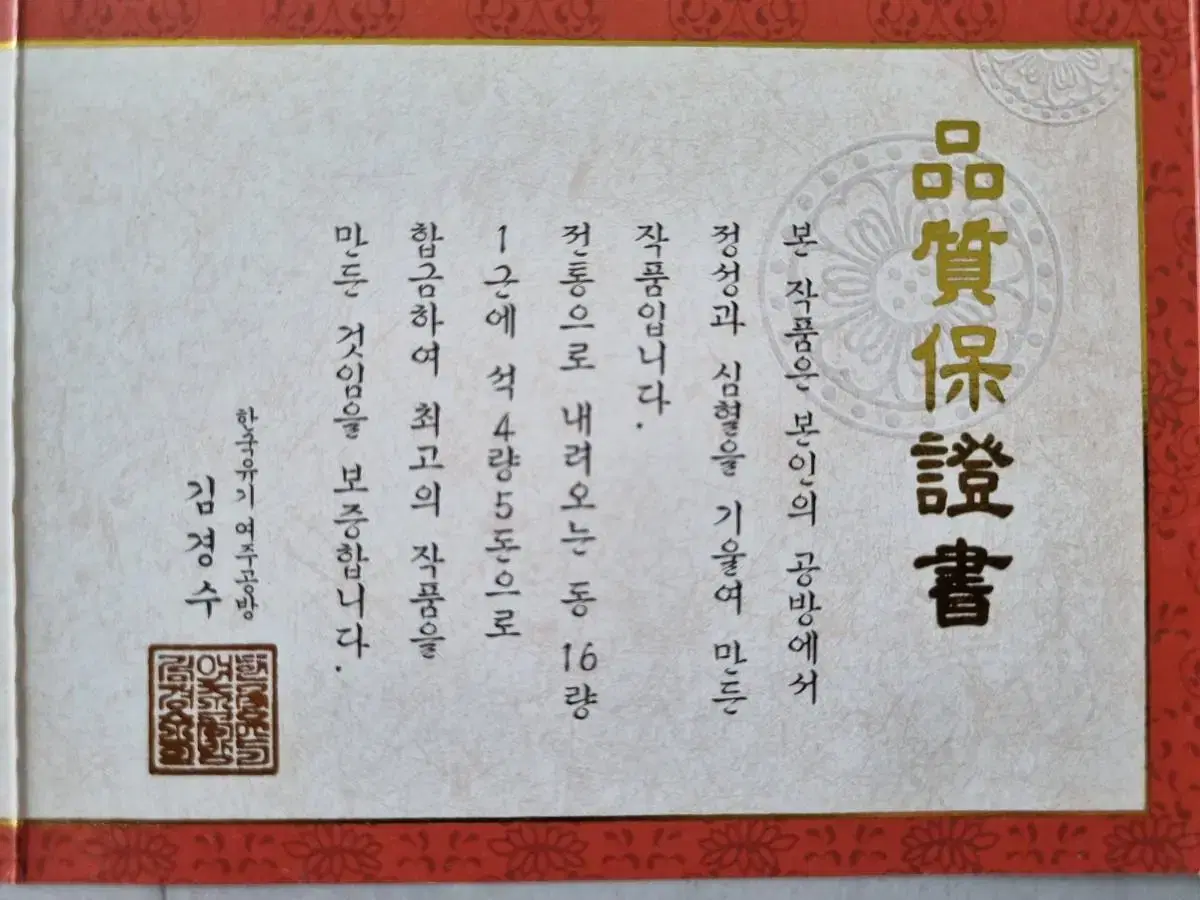 品質保證書
본 작품은 본인의 공방에서
정성과 심혈을 기울여 만든
작품입니다.
전통으로 내려오는 동 16량
1근에 석 4량5돈으로
합금하여 최고의 작품을
만든 것임을 보증합니다.
한국유기 여주공방
김경수